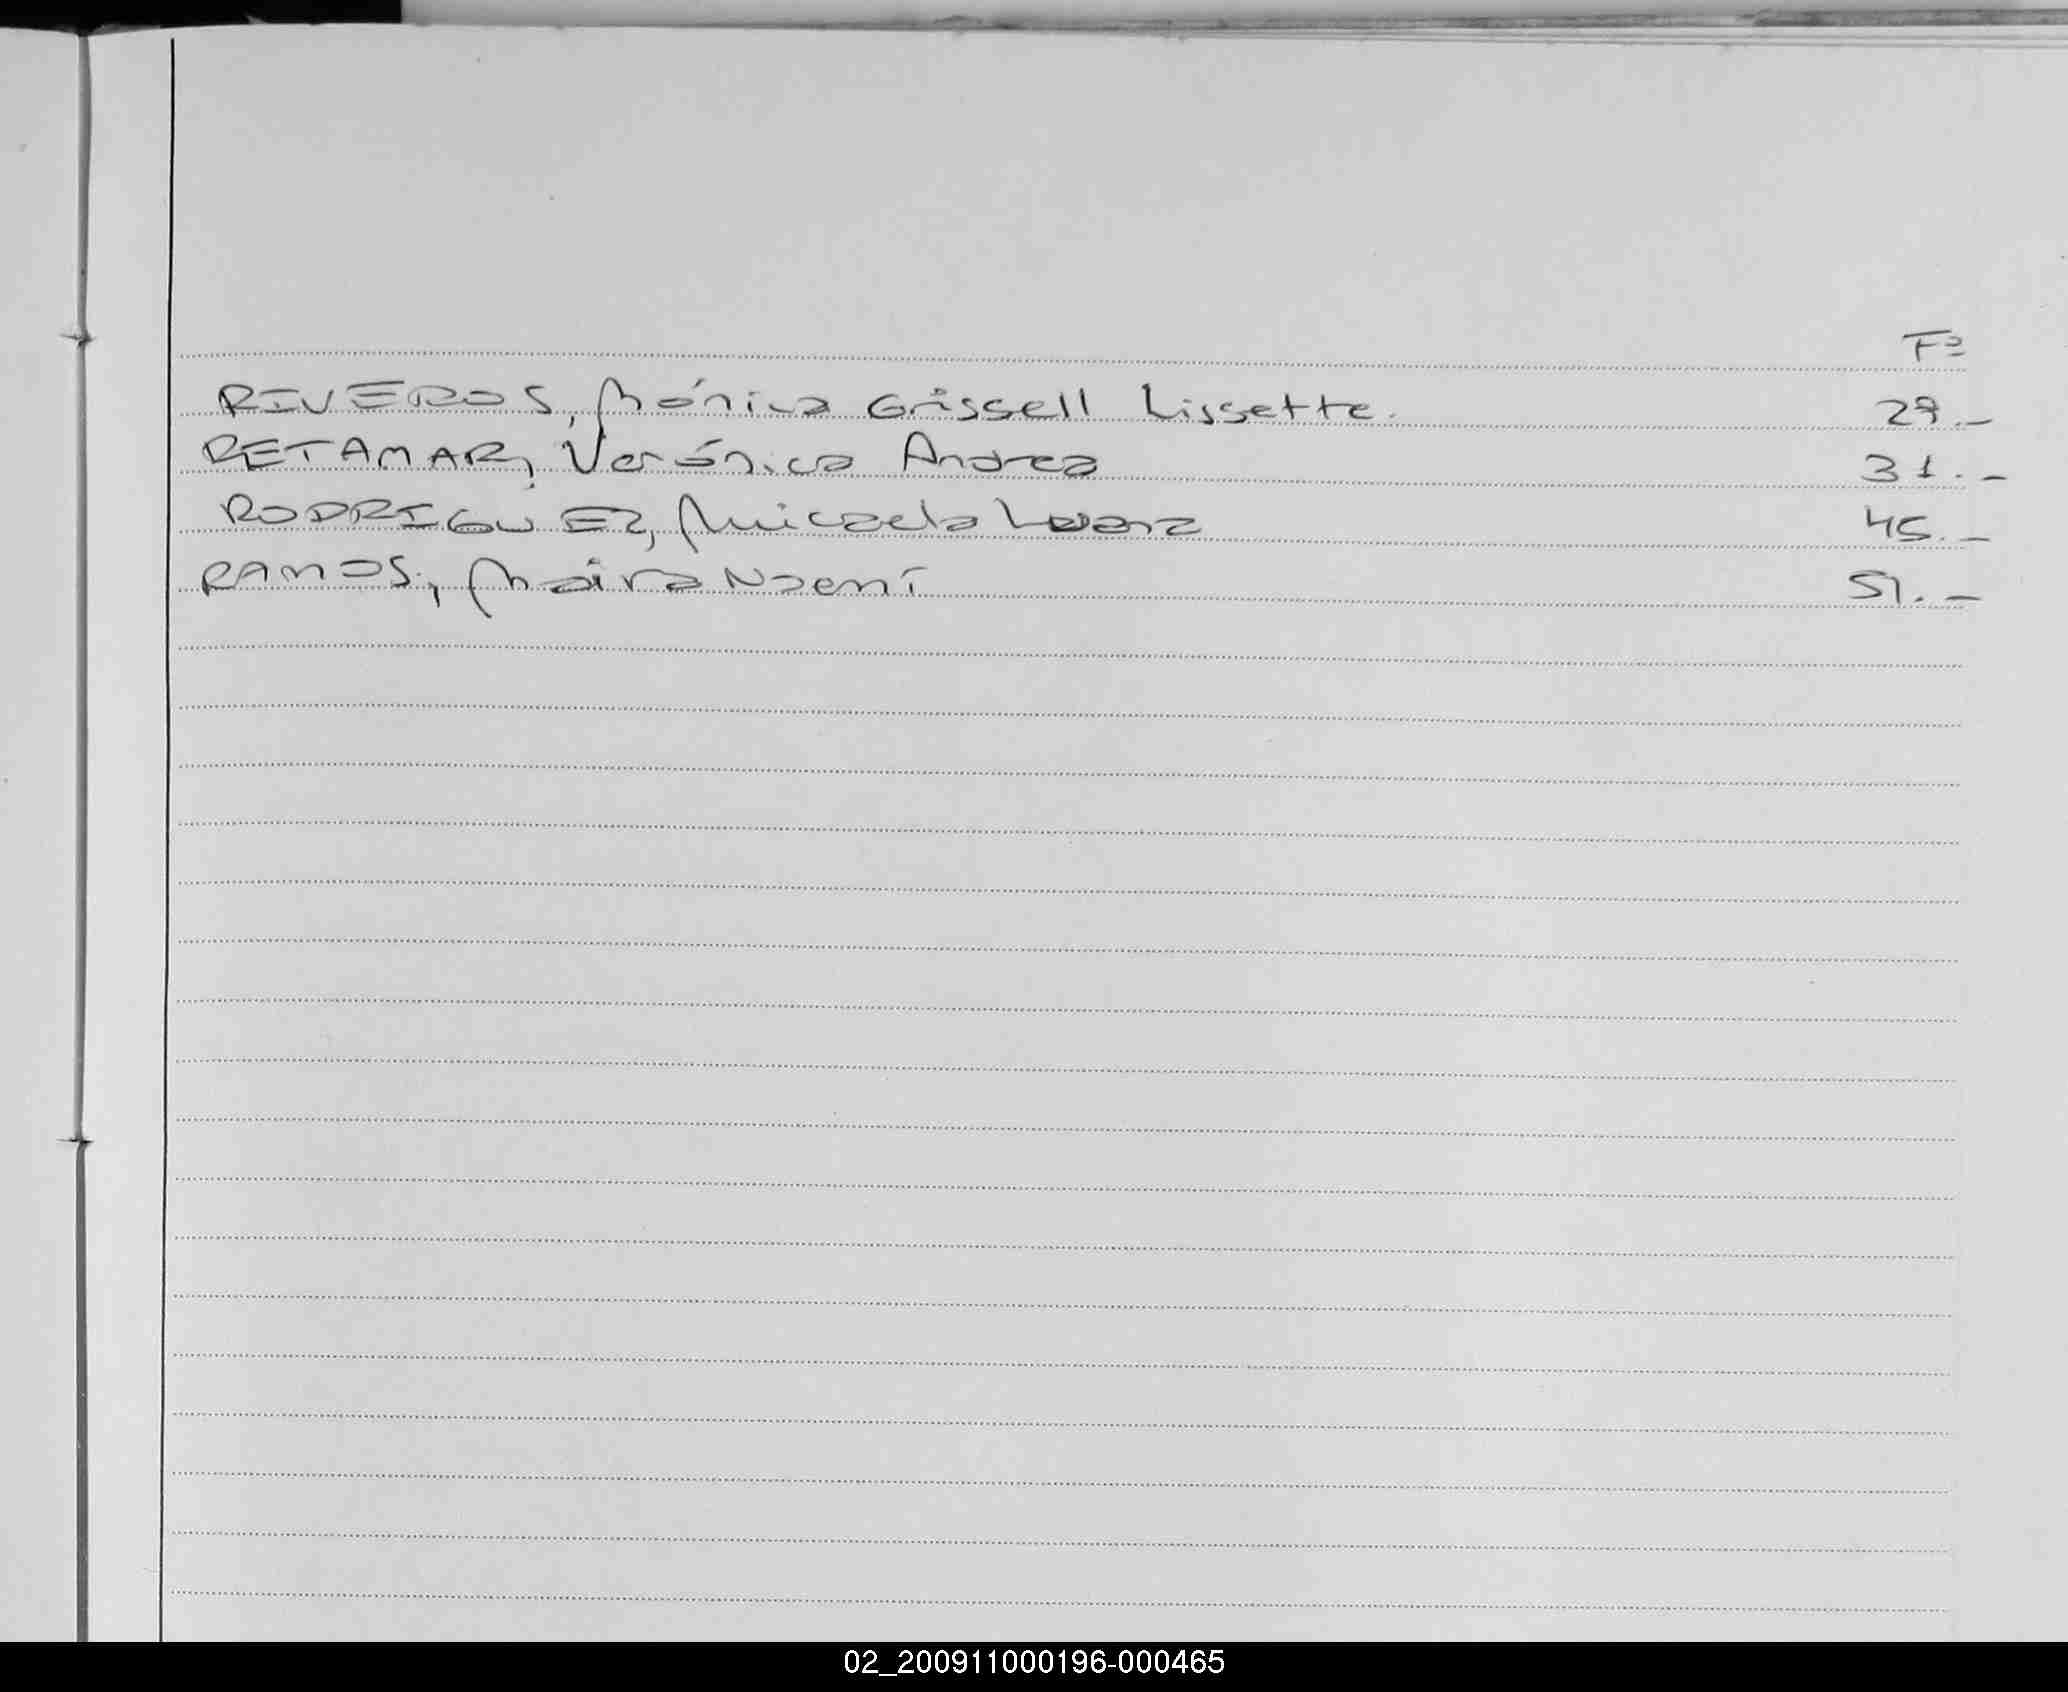 Fº
RIVEROS, Mónica Grissell Lissette. 29.-
RETAMAR, Verónica Andrea 31.-
RODRIGUEZ, Micaela 45.-
RAMOS, Maira Noemí 51.-
02_200911000196-000465